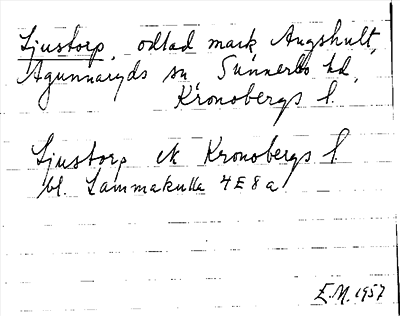 Ljustorp, odlad mark, Angshult,
Agunnaryds sn, Sunnerbo hd,
Kronobergs l.
Ljustorp ek Kronobergs l.
bl. Lammakulla 4E8a
E.M. 1957